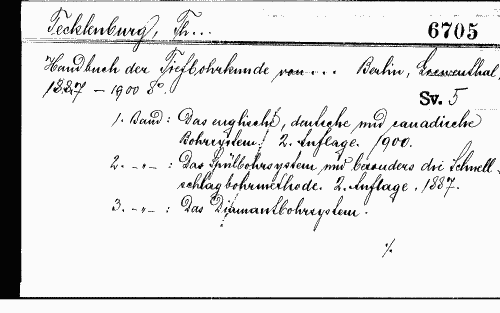 Tecklenburg, Th...
6705
Handbuch der Tiefbohrkunde von... Berlin, Loewenthal,
1887 – 1900 8°.
Sv. 5
1. Band: Das englische, deutsche und canadische
Bohrsystem. 2. Auflage. 1900.
2. -"- : Das Spülbohrsystem und besonders die Schnell-
schlagbohrmethode. 2. Auflage. 1887.
3. -"- : Das Diamantbohrsystem.
·/.